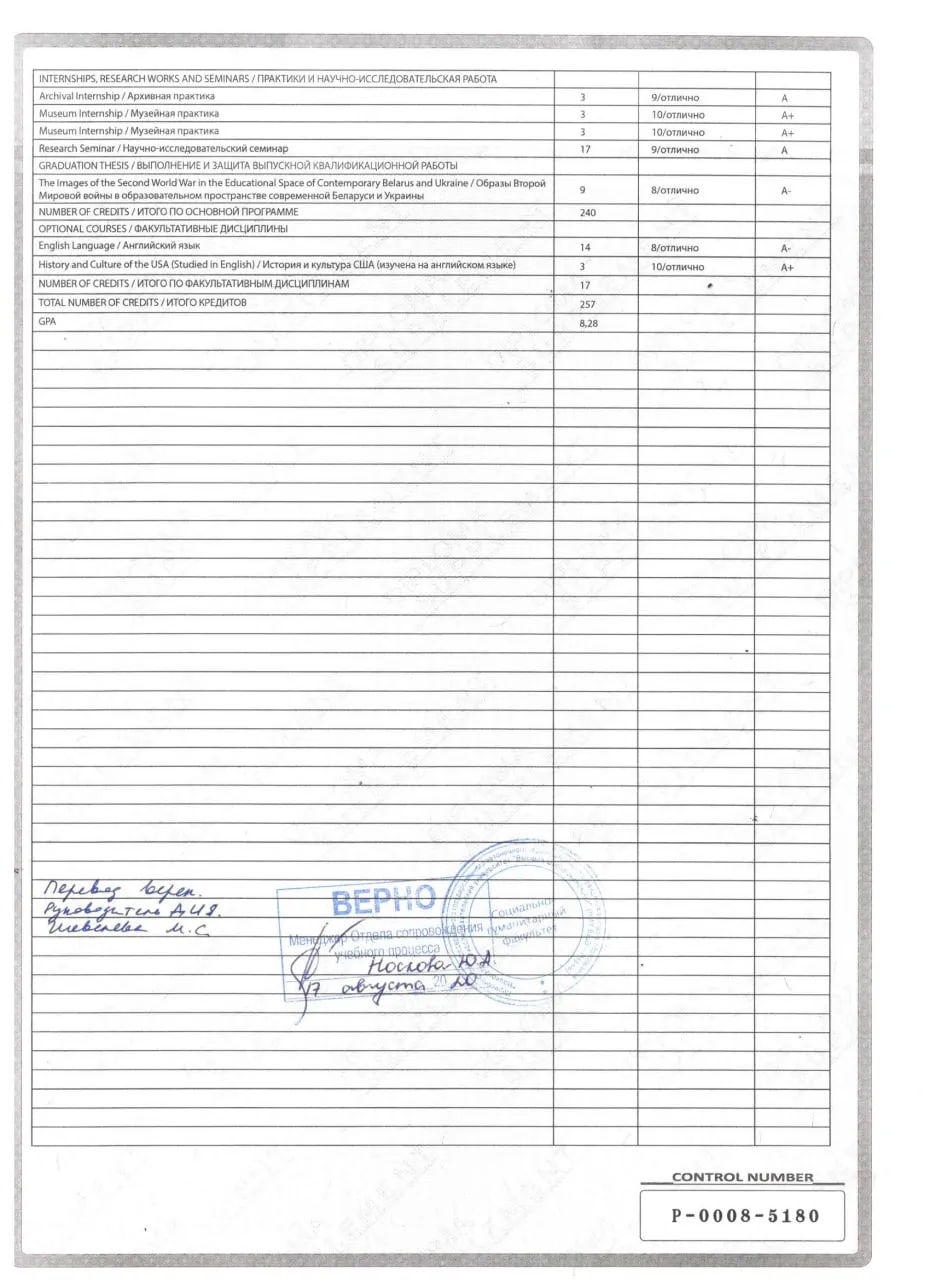 INTERNSHIPS, RESEARCH WORKS AND SEMINARS / ПРАКТИКИ И НАУЧНО-ИССЛЕДОВАТЕЛЬСКАЯ РАБОТА
Archival Internship / Архивная практика 3 9/отлично A
Museum Internship / Музейная практика 3 10/отлично A+
Museum Internship / Музейная практика 3 10/отлично A+
Research Seminar / Научно-исследовательский семинар 17 9/отлично A
GRADUATION THESIS / ВЫПОЛНЕНИЕ И ЗАЩИТА ВЫПУСКНОЙ КВАЛИФИКАЦИОННОЙ РАБОТЫ
The Images of the Second World War in the Educational Space of Contemporary Belarus and Ukraine / Образы Второй
Мировой войны в образовательном пространстве современной Беларуси и Украины 9 8/отлично A-
NUMBER OF CREDITS / ИТОГО ПО ОСНОВНОЙ ПРОГРАММЕ 240
OPTIONAL COURSES / ФАКУЛЬТАТИВНЫЕ ДИСЦИПЛИНЫ
English Language / Английский язык 14 8/отлично A-
History and Culture of the USA (Studied in English) / История и культура США (изучена на английском языке) 3 10/отлично A+
NUMBER OF CREDITS / ИТОГО ПО ФАКУЛЬТАТИВНЫМ ДИСЦИПЛИНАМ 17
TOTAL NUMBER OF CREDITS / ИТОГО КРЕДИТОВ 257
GPA 8,28
Перевод верен.
Руководитель ДИЯ.
М. С.
ВЕРНО
Менеджер Отдела сопровождения
учебного процесса
Носкова Ю.А.
17 августа 2020
Социально-
гуманитарный
факультет
CONTROL NUMBER
P-0008-5180